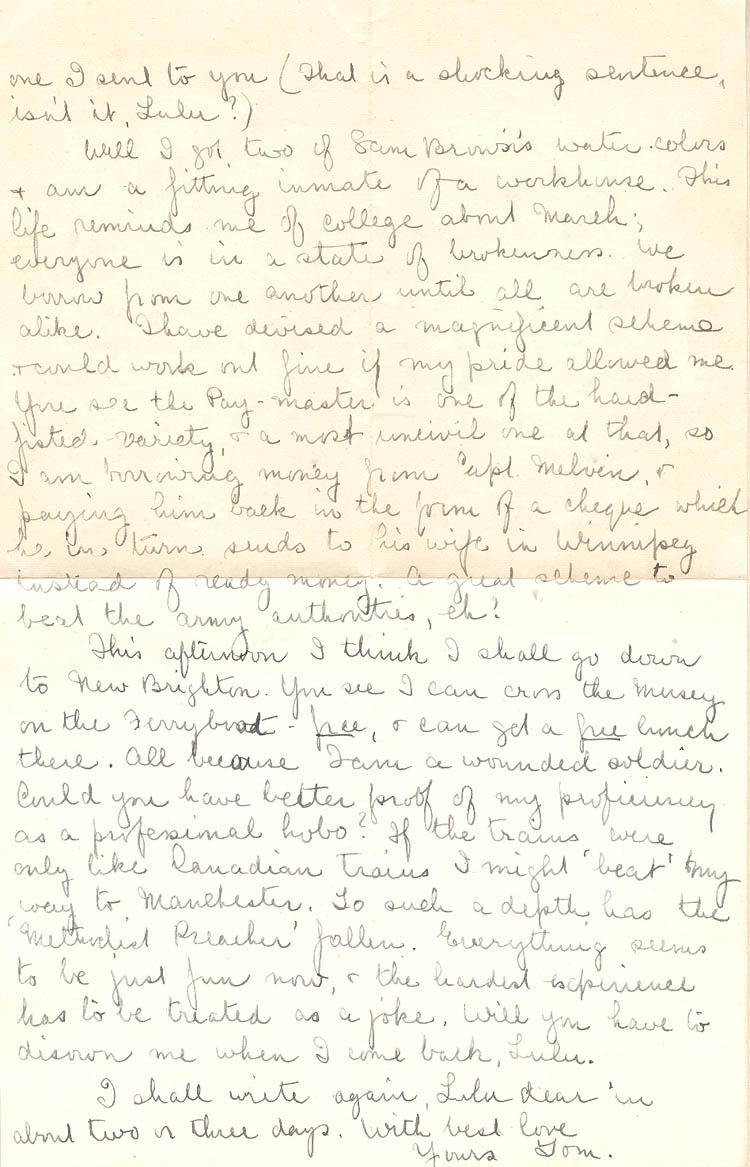 one I sent to you (That is a shocking sentence,
isn't it, Lulu?)
Well I got two of Sam Browns's water-colors
& am a fitting inmate of a workhouse. This
life reminds me of college about March;
everyone is in a state of brokenness. We
borrow from one another until all are broken
alike. I have devised a magnificent scheme
& could work out fine if my pride allowed me.
You see the Pay-master is one of the hard-
fisted-variety, & a most uncivil one at that, so
I am borrowing money from Capt. Melvin, &
paying him back in the form of a cheque which
he in turn sends to his wife in Winnipeg
instead of ready money. A great scheme to
beat the army authorities, eh!
This afternoon I think I shall go down
to New Brighton. You see I can cross the Mersey
on the Ferryboat - free, & can get a free lunch
there. All because I am a wounded soldier.
Could you have better proof of my proficiency
as a professional hobo? If the trains were
only like Canadian trains I might 'beat' my
way to Manchester. To such a depth has the
'Methodist Preacher' fallen. Everything seems
to be just fun now, & the hardest experience
has to be treated as a joke. Will you have to
disown me when I come back, Lulu.
I shall write again, Lulu dear in
about two or three days. With best love
Yours Tom.